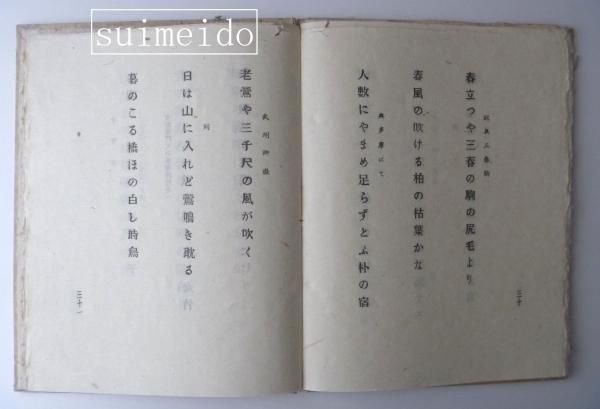 suimeido
春立つや三春の駒の尻毛より
春風の吹ける柏の枯葉かな
奥多摩にて
人数にやまめ足らずとふ朴の宿
三十
武州御嶽
老鶯や三千尺の風が吹く
同
日は山に入れど鶯鳴き耽る
暮のこる橋ほの白し時鳥
三十一